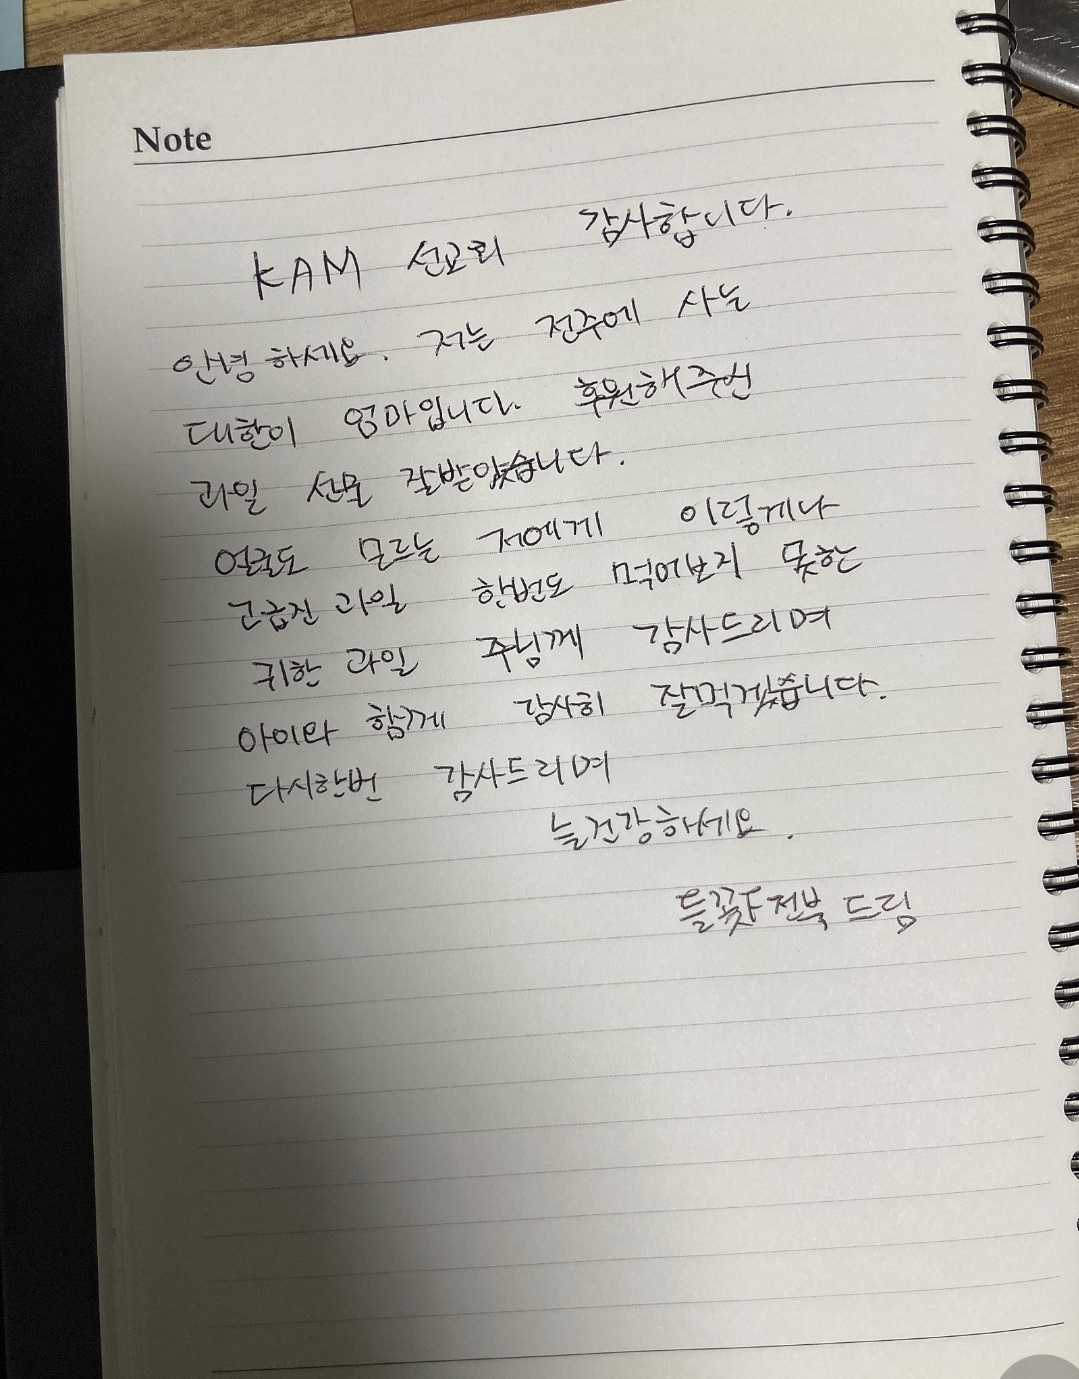 Note
KAM 선교회 감사합니다.
안녕하세요. 저는 전주에 사는
대한이 엄마입니다. 후원해주신
과일 선물 잘받았습니다.
얼굴도 모르는 저에게 이렇게나
고급진 과일 한번도 먹어보지 못한
귀한 과일 주님께 감사드리며
아이와 함께 감사히 잘먹겠습니다.
다시한번 감사드리며
늘건강하세요.
들꽃F전북 드림